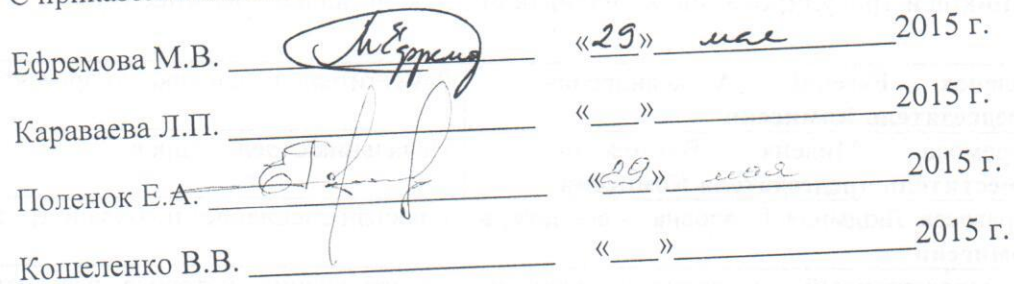 Ефремова М.В. «29» мая 2015 г.
Караваева Л.П. «___» 2015 г.
Поленок Е.А. «29» мая 2015 г.
Кошеленко В.В. «___» 2015 г.